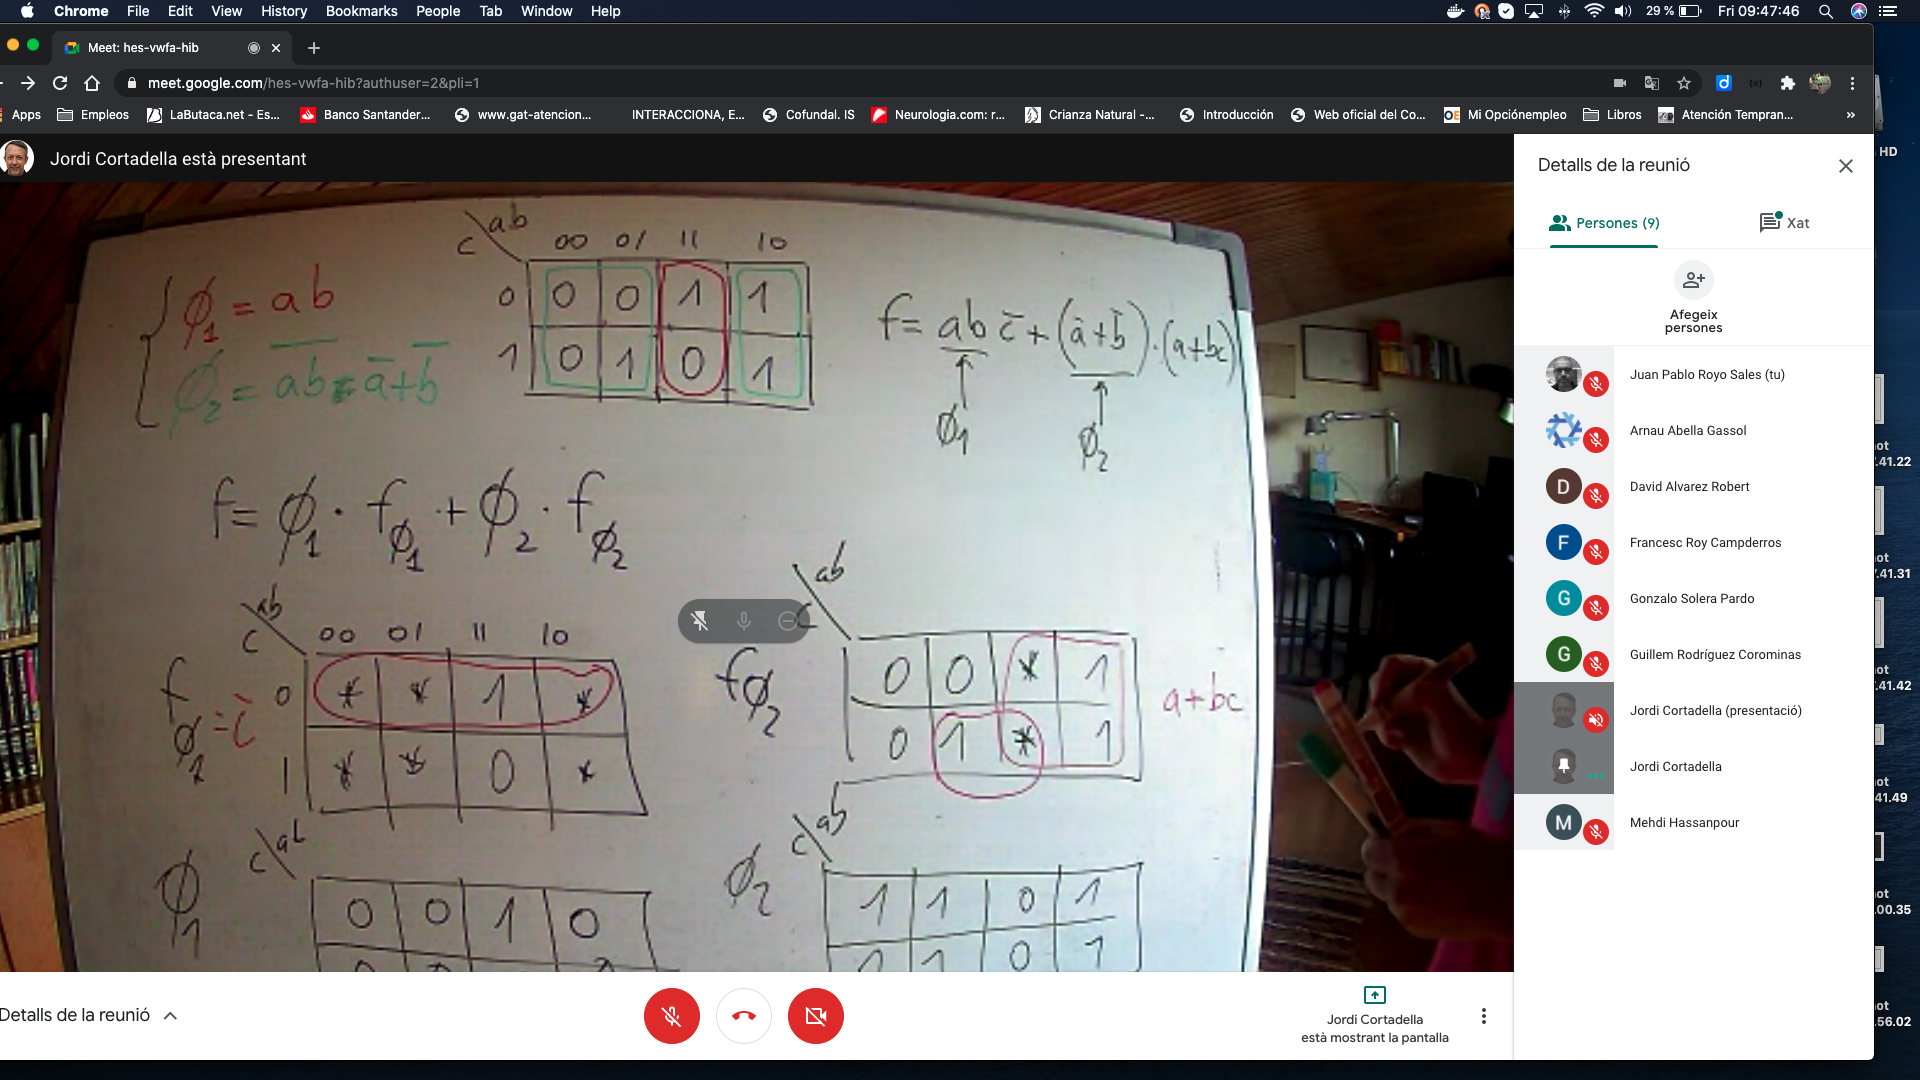 Chrome File Edit View History Bookmarks People Tab Window Help
29 % Fri 09:47:46
Meet: hes-vwfa-hib
meet.google.com/hes-vwfa-hib?authuser=2&pli=1
Apps Empleos LaButaca.net - Es... Banco Santander... www.gat-atencion... INTERACCIONA, E... Cofundal. IS Neurologia.com: r... Crianza Natural -... Introducción Web oficial del Co... Mi Opciónempleo Libros Atención Tempran... »
HD
Jordi Cortadella està presentant
ab
c 00 01 11 10
0 0 0 1 1
1 0 1 0 1
ϕ₁ = ab
ϕ₂ = \overline{ab} = a̅+b̅
f = abc̅ + (a̅+b̅)·(a+bc)
ϕ₁ ϕ₂
f = ϕ₁ · f_ϕ₁ + ϕ₂ · f_ϕ₂
ab
c 00 01 11 10
f_ϕ₁ = c̅
0 * * 1 *
1 * * 0 *
ab
c
f_ϕ₂
0 0 * 1
0 1 * 1
a+bc
ϕ₁
c ab
0 0 1 0
ϕ₂
c ab
1 1 0 1
1 1 0 1
Detalls de la reunió
Persones (9) Xat
Afegeix
persones
Juan Pablo Royo Sales (tu)
Arnau Abella Gassol
D David Alvarez Robert
F Francesc Roy Campderros
G Gonzalo Solera Pardo
G Guillem Rodríguez Corominas
Jordi Cortadella (presentació)
Jordi Cortadella
M Mehdi Hassanpour
Detalls de la reunió
Jordi Cortadella
està mostrant la pantalla
ot
.41.22
ot
.41.31
ot
.41.42
ot
41.49
ot
.00.35
ot
.56.02